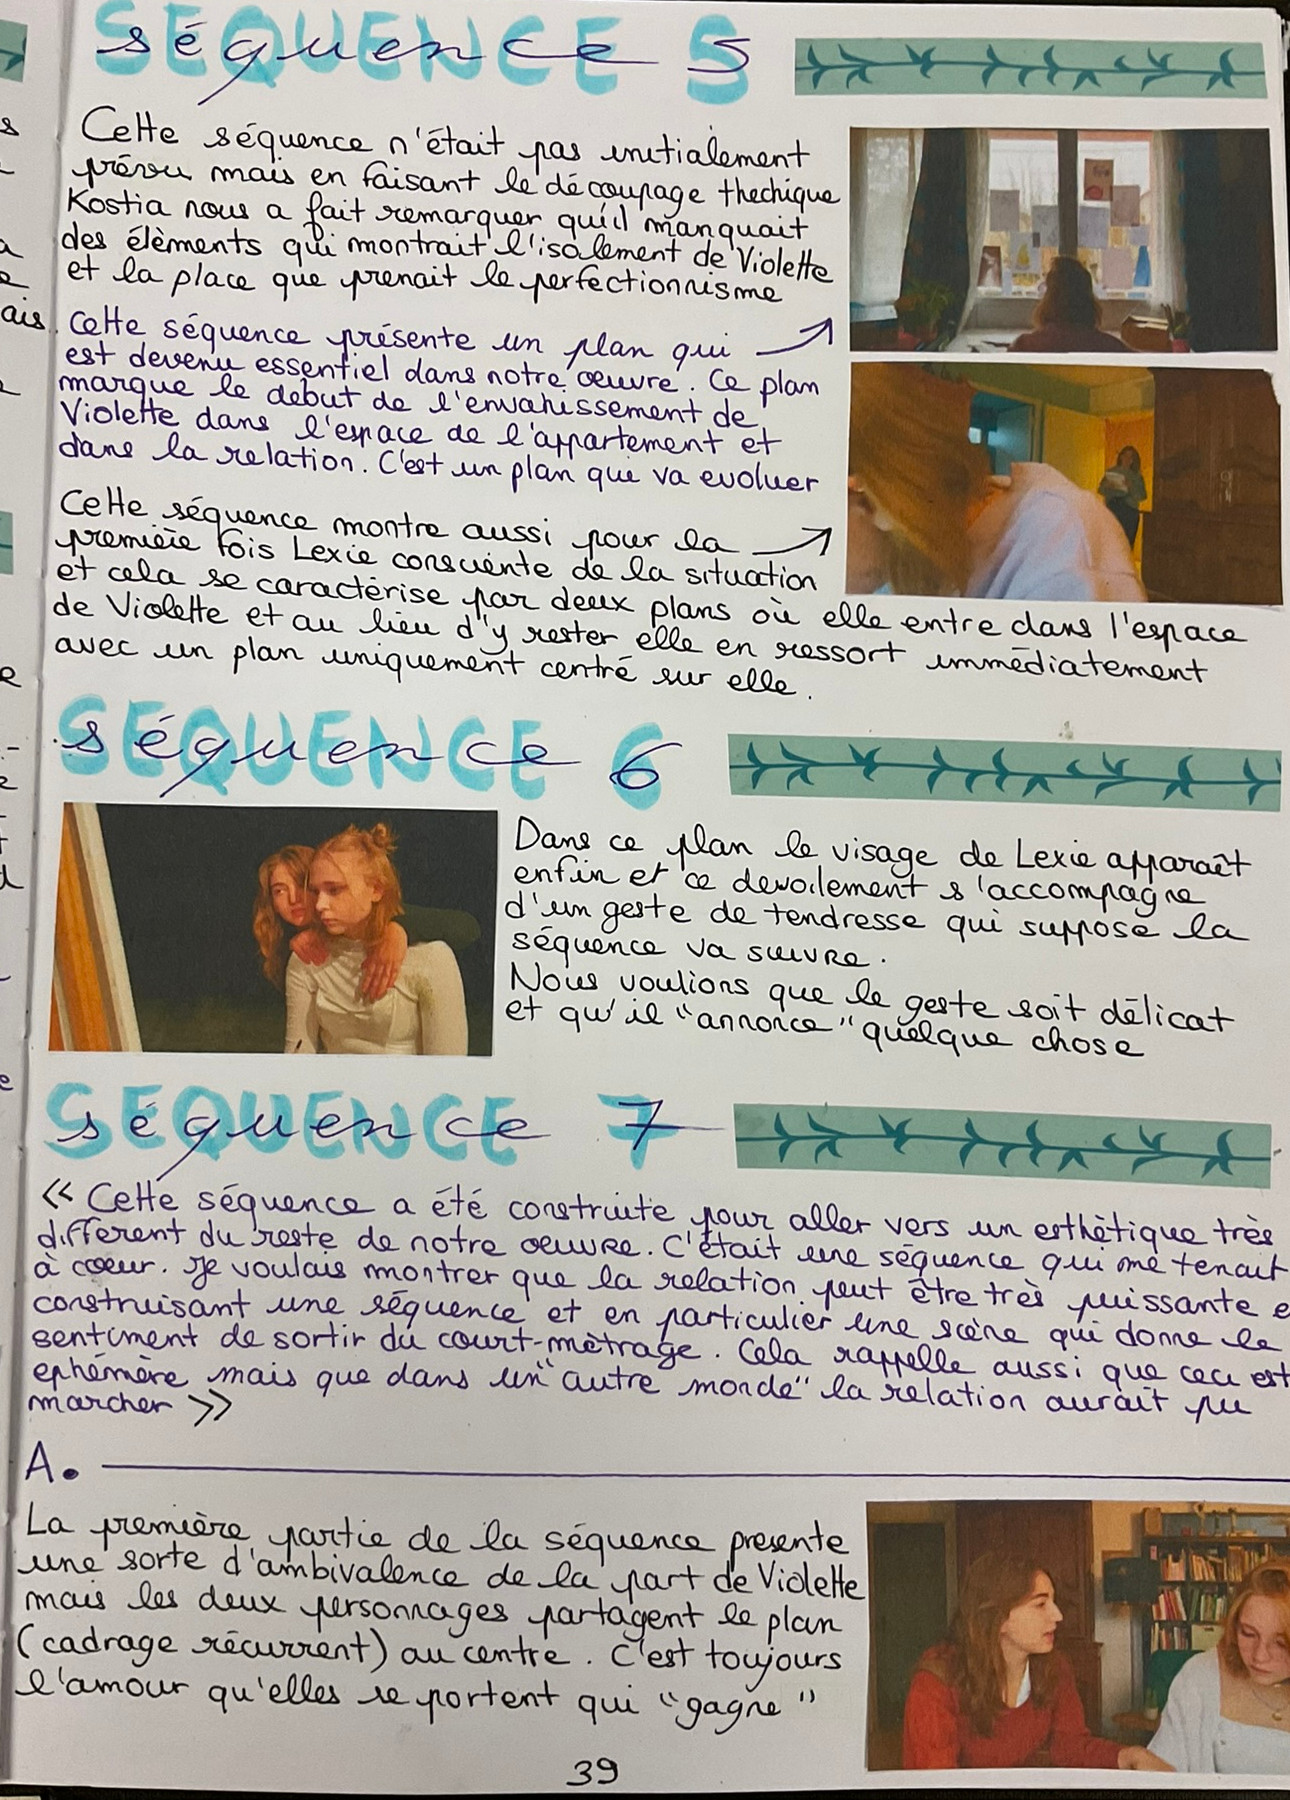 séquence 5
Cette séquence n'était pas initialement
prévu mais en faisant le découpage thechique
Kostia nous a fait remarquer qu'il manquait
des élèments qui montrait l'isolement de Violette
et la place que prenait le perfectionnisme
Cette séquence présente un plan qui
est devenu essentiel dans notre oeuvre. Ce plan
marque le debut de l'envahissement de
Violette dans l'espace de l'appartement et
dans la relation. C'est un plan que va evoluer
Cette séquence montre aussi pour la
première fois Lexie consciente de la situation
et cela se caractérise par deux plans où elle entre dans l'espace
de Violette et au lieu d'y rester elle en ressort immédiatement
avec un plan uniquement centré sur elle.
séquence 6
Dans ce plan le visage de Lexie apparaît
enfin et ce devoilement s'accompagne
d'un geste de tendresse qui suppose la
séquence va suivre.
Nous voulions que le geste soit délicat
et qu'il "annonce" quelque chose
séquence 7
<< Cette séquence a été construite pour aller vers un esthètique très
différent du reste de notre oeuvre. C'était une séquence qui me tenait
à coeur. Je voulais montrer que la relation peut être très puissante e
construisant une séquence et en particulier une scène qui donne le
sentiment de sortir du court-mètrage. Cela rappelle aussi que ceci est
ephémère mais que dans un "autre monde" la relation aurait pu
marcher >>
A.
La première partie de la séquence presente
une sorte d'ambivalence de la part de Violette
mais les deux personnages partagent le plan
(cadrage récurrent) au centre. C'est toujours
l'amour qu'elles se portent qui "gagne"
39